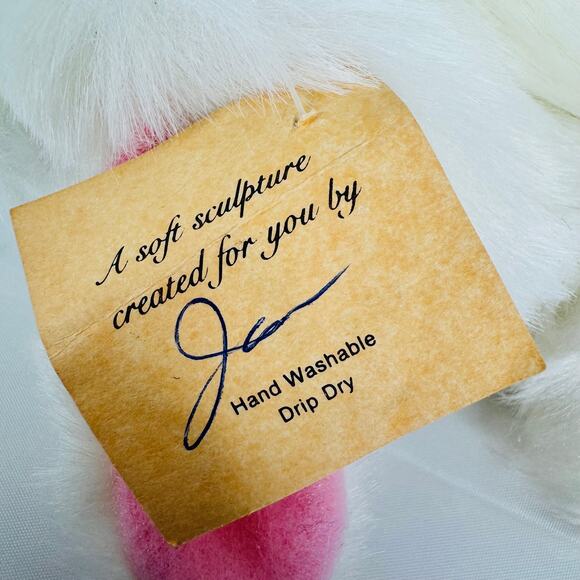 A soft sculpture
created for you by
Jan
Hand Washable
Drip Dry